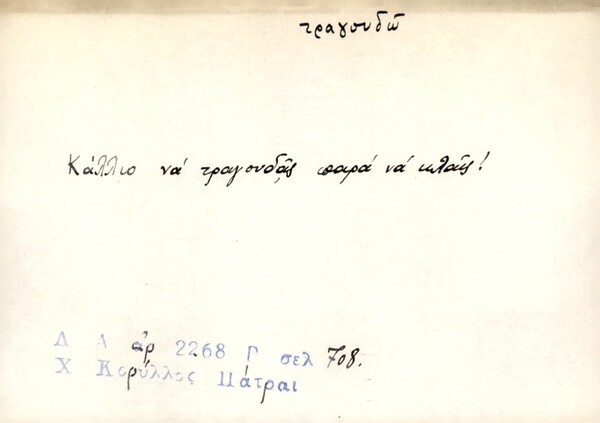 τραγουδῶ
Κάλλιο νά τραγουδᾷς παρά νά κλαῖς!
Λ Α ἀρ 2268 Γ σελ 708.
Χ Κορύλλος Πάτραι